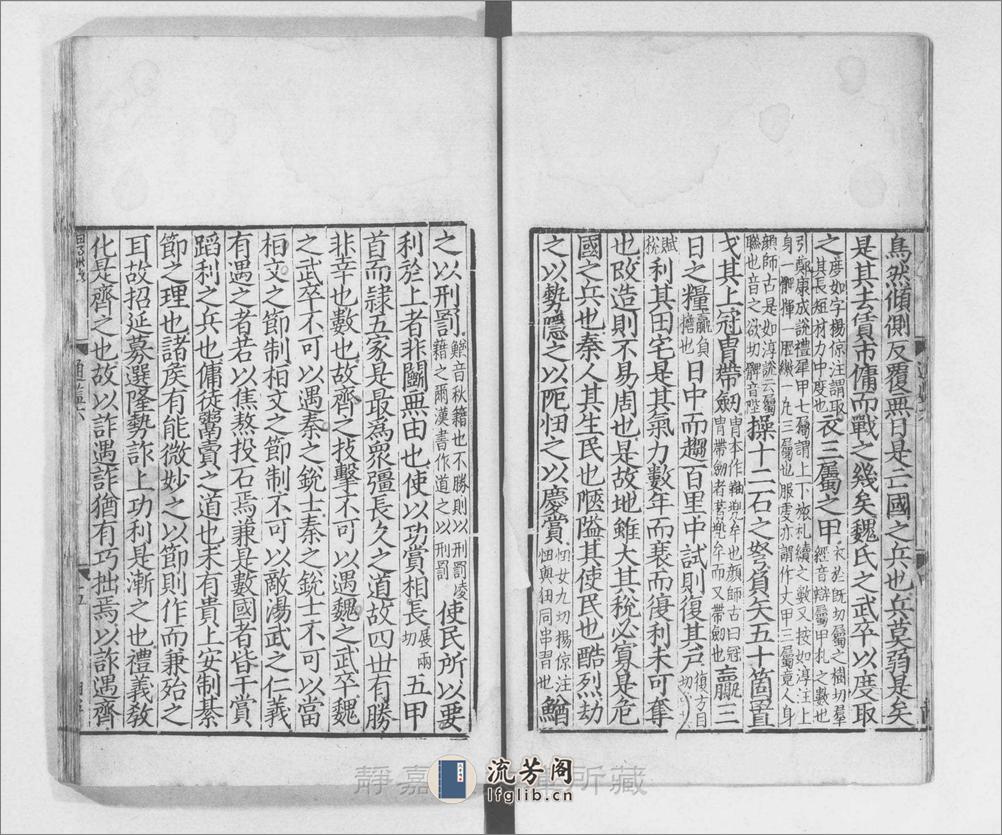 焉然傾側反覆無日是亡國之兵也兵莫弱是矣
是其去賃市傭而戰之幾矣魏氏之武卒以度取
之度如字楊倞注謂取其長短材力中度也衣三屬之甲衣於旣切屬之欲切
引鄭康成說禮犀甲七屬謂上下旅札續之數
顔師古
戈其上冠冑帶劒操十二石之弩負矢五十箇置
戈其上冠冑帶劒冑本作軸兜牟也顔師古曰冠冑帶劒者著兜牟而又帶劒也贏三
日之糧贏負擔也日中而趨百里中試則復其戶復方目切
利其田宅是其氣力數年而衰而復利未可奪
也改造則不易周也是故地雖大其稅必寡是危
國之兵也秦人其生民也陿隘其使民也酷烈劫
之以勢隱之以阨忸之以慶賞忸女九切楊倞注忸與狃同串習也鰌
之以刑罰鰌音秋籍也不勝則以刑罰凌籍之爾漢書作道之以刑罰使民所以要
利於上者非鬭無由也使以功賞相長展兩切五甲
首而隸五家是最爲衆彊長久之道故四世有勝
非幸也數也故齊之技擊不可以遇魏之武卒魏
之武卒不可以遇秦之銳士秦之銳士不可以當
桓文之節制桓文之節制不可以敵湯武之仁義
有遇之者若以焦熬投石焉兼是數國者皆干賞
蹈利之兵也傭徒鬻賣之道也未有貴上安制綦
節之理也諸矦有能微妙之以節則作而兼殆之
耳故招延募選隆勢詐上功利是漸之也禮義敎
化是齊之也故以詐遇詐猶有巧拙焉以詐遇齊
通鑑六
五
靜嘉
所藏
流芳阁
lfglib.cn